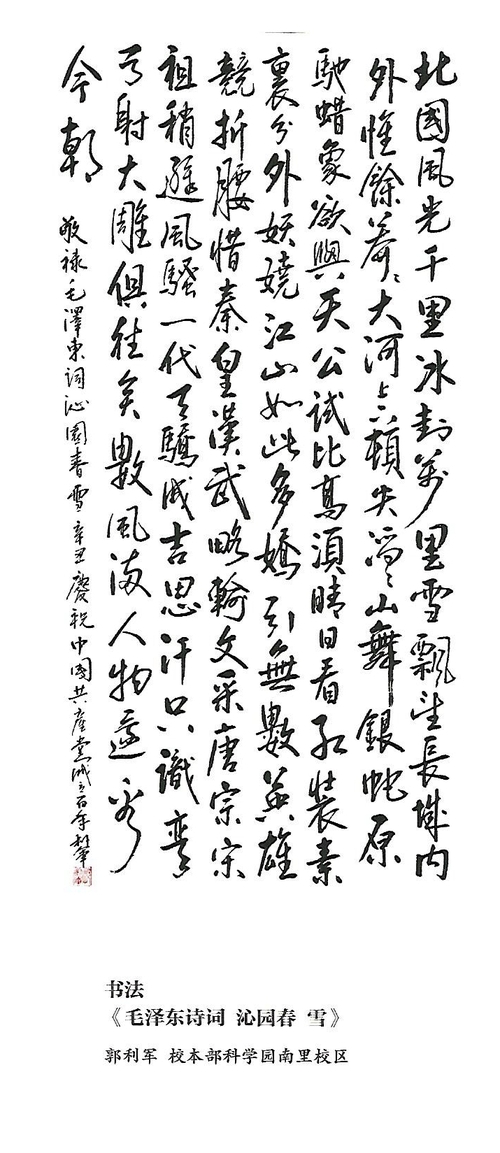 北國風光千里冰封萬里雪飄望長城内
外惟餘莽〻大河上下頓失滔〻山舞銀蛇原
馳蠟象欲與天公試比高須晴日看紅裝素
裹分外妖嬈江山如此多嬌引無數英雄
競折腰惜秦皇漢武略輸文采唐宗宋
祖稍遜風騷一代天驕成吉思汗只識彎
弓射大雕俱往矣數風流人物還看
今朝
敬祿毛澤東詞沁園春雪辛丑慶祝中國共產黨成立百年
书法
《毛泽东诗词 沁园春 雪》
郭利军 校本部科学园南里校区